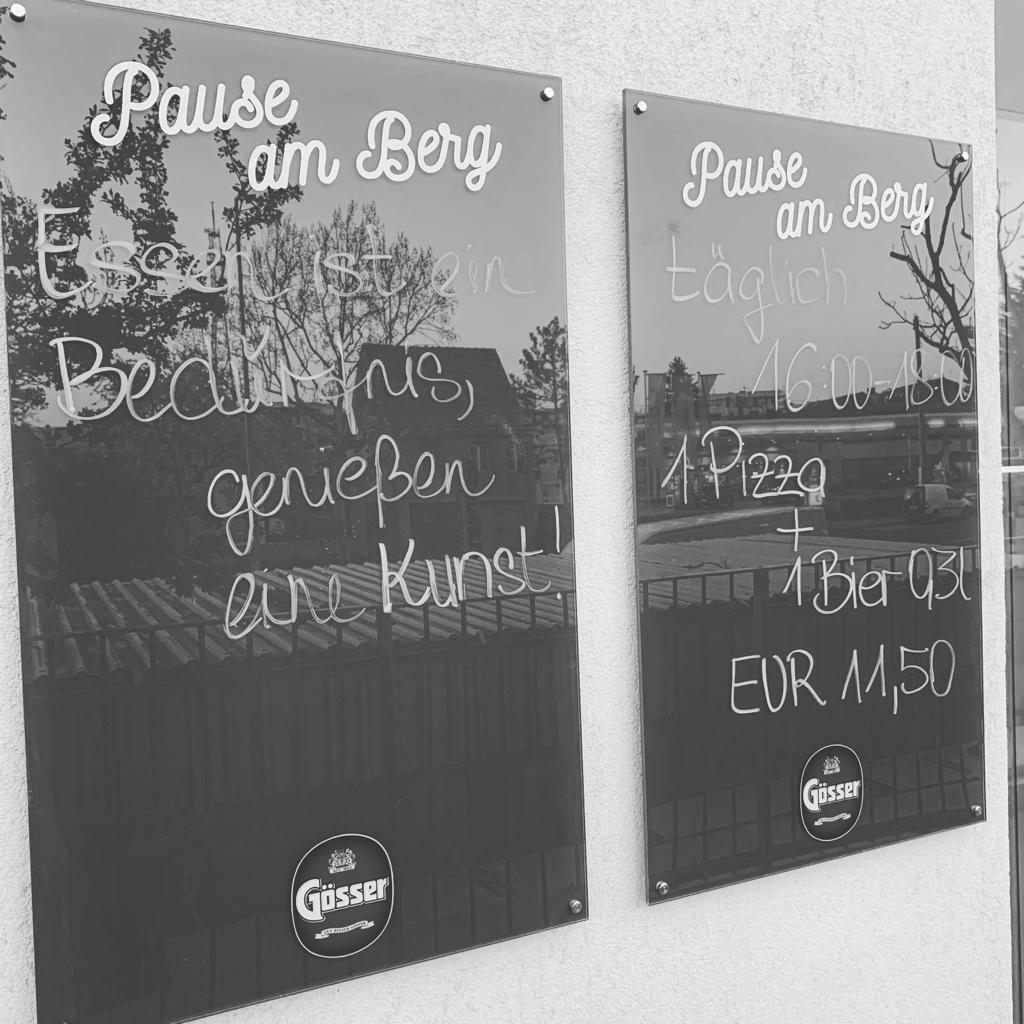 Pause
am Berg
Essen ist ein
Bedürfnis,
genießen
eine Kunst!
Gösser
Pause
am Berg
täglich
16:00-18:00
1 Pizza
+
1 Bier 0,3l
EUR 11,50
Gösser